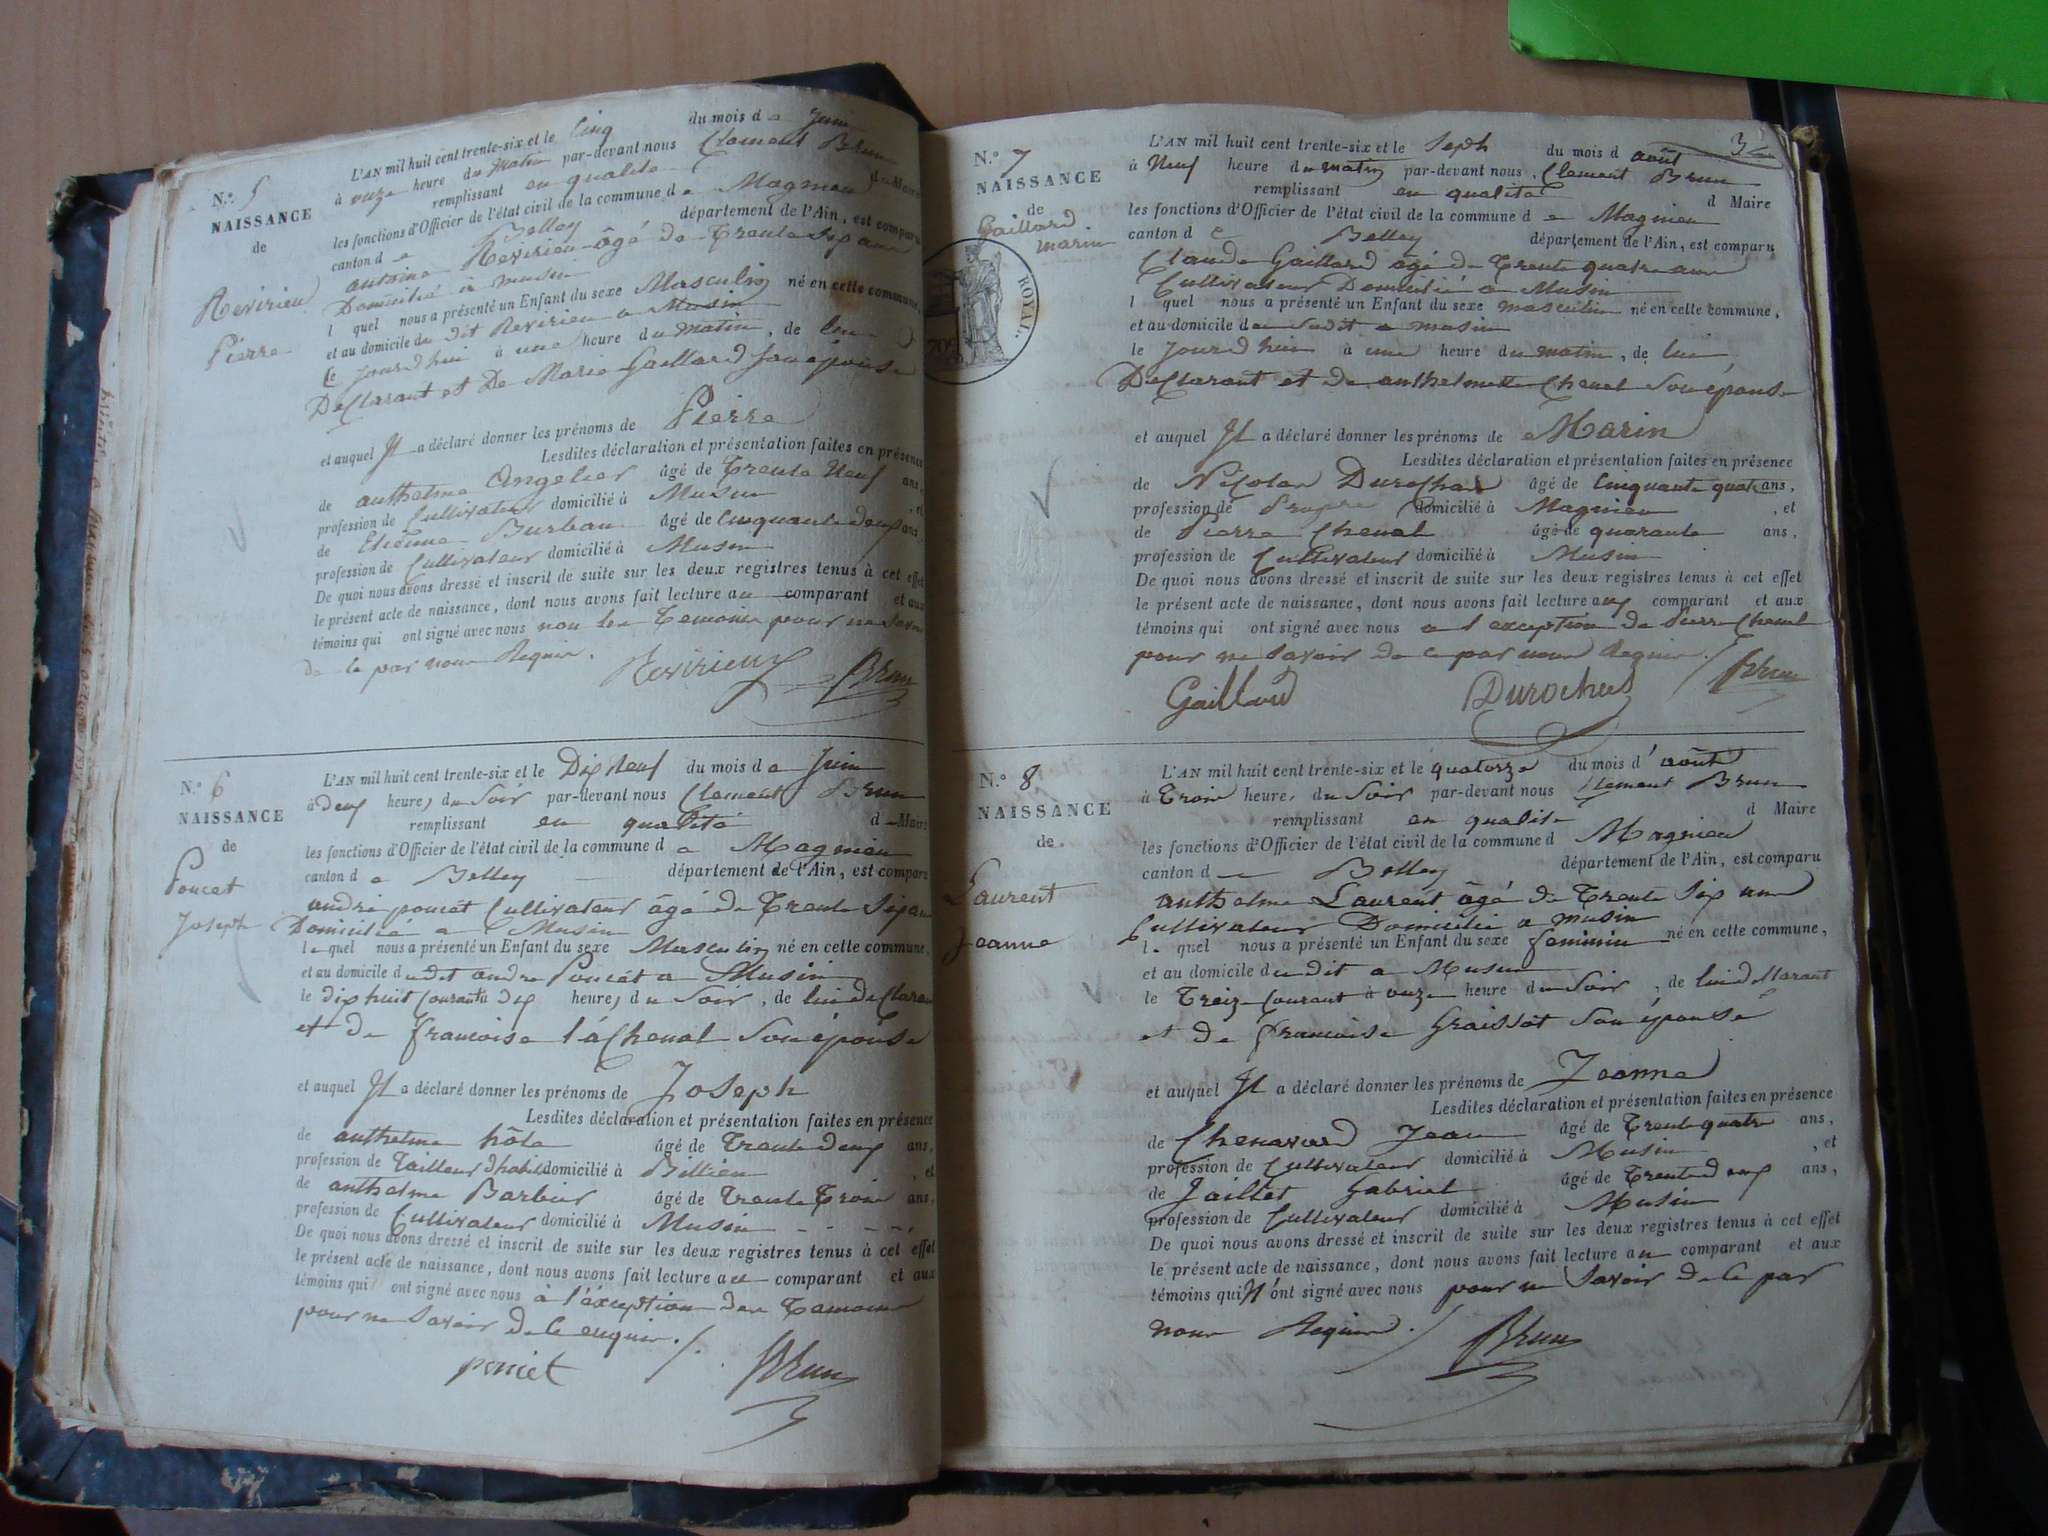 N.° 5
NAISSANCE
de
Revirieu
Pierre
L'AN mil huit cent trente-six et le Cinq du mois de Juin
à onze heure du matin par-devant nous Clement Brun
remplissant en qualité de Maire
les fonctions d'Officier de l'état civil de la commune de Magnieu
canton de Belley département de l'Ain, est comparu
antoine Revirieu âgé de Trente Six ans
Domicilié à musin
lequel nous a présenté un Enfant du sexe Masculin né en cette commune,
et au domicile du dit Revirieu a Musin
le jourdhui à une heure du matin, de lui
Declarant et De Marie Gaillard Son épouse
et auquel Il a déclaré donner les prénoms de Pierre
Lesdites déclaration et présentation faites en présence
de anthelme Angelier âgé de Trente Neuf ans,
profession de Cultivateur domicilié à Musin, et
de Etienne Burban âgé de Cinquante deux ans,
profession de Cultivateur domicilié à Musin
De quoi nous avons dressé et inscrit de suite sur les deux registres tenus à cet effet
le présent acte de naissance, dont nous avons fait lecture au comparant et aux
témoins qui ont signé avec nous non les Temoins pour ne Savoir
de ce par nous Requis.
Revirieux Brun
N.° 6
NAISSANCE
de
Poncet
Joseph
L'AN mil huit cent trente-six et le Dix Neuf du mois de Juin
à deux heures du Soir par-devant nous Clement Brun
remplissant en qualité de Maire
les fonctions d'Officier de l'état civil de la commune de Magnieu
canton de Belley département de l'Ain, est comparu
andré poncet Cultivateur âgé de Trente Six ans
Domicilié a Musin
lequel nous a présenté un Enfant du sexe Masculin né en cette commune,
et au domicile du dit andré Poncet a Musin
le dix huit Courant à dix heures du Soir, de lui declarant
et de francoise l'áChenal Son épouse
et auquel Il a déclaré donner les prénoms de Joseph
Lesdites déclaration et présentation faites en présence
de anthelme hôte âgé de Trente deux ans,
profession de Tailleur d'habit domicilié à Billieu, et
de anthelme Barbier âgé de Trente Trois ans,
profession de Cultivateur domicilié à Musin
De quoi nous avons dressé et inscrit de suite sur les deux registres tenus à cet effet
le présent acte de naissance, dont nous avons fait lecture au comparant et aux
témoins qui ont signé avec nous à l'éxception des Temoins
pour ne Savoir de ce enquis.
poncet Brun
3
N.° 7
NAISSANCE
de
Gaillard
marin
ROYAL
L'AN mil huit cent trente-six et le Sept du mois d août
à Neuf heure du matin par-devant nous Clement Brun
remplissant en qualité d Maire
les fonctions d'Officier de l'état civil de la commune de Magnieu
canton de Belley département de l'Ain, est comparu
Claude Gaillard âgé de Trente quatre ans
Cultivateur Domicilié a Musin
l quel nous a présenté un Enfant du sexe masculin né en cette commune,
et au domicile du Sudit a musin
le Jourdhui à une heure du matin, de lui
Declarant et de anthelmette Chenal Son épouse
et auquel Il a déclaré donner les prénoms de Marin
Lesdites déclaration et présentation faites en présence
de Nicolas Durochas âgé de Cinquante quatre ans,
profession de domicilié à Magnieu, et
de Pierre Chenal âgé de quarante ans,
profession de Cultivateur domicilié à Musin
De quoi nous avons dressé et inscrit de suite sur les deux registres tenus à cet effet
le présent acte de naissance, dont nous avons fait lecture aux comparant et aux
témoins qui ont signé avec nous a l'exception de Pierre Chenal
pour ne Savoir de ce par nous Requis.
Gaillard Durochas Brun
N.° 8
NAISSANCE
de
Laurent
Jeanne
L'AN mil huit cent trente-six et le quatorze du mois d'août
à Trois heure, du Soir par-devant nous Clement Brun
remplissant en qualité d Maire
les fonctions d'Officier de l'état civil de la commune d Magnieu
canton de Belley département de l'Ain, est comparu
anthelme Laurent âgé de Trente Six ans
Cultivateur Domicilié a musin
l. quel nous a présenté un Enfant du sexe feminin né en cette commune,
et au domicile du dit a Musin
le Treize Courant à onze heure du Soir, de lui declarant
et de francoise Graissot Son épouse
et auquel Il a déclaré donner les prénoms de Jeanne
Lesdites déclaration et présentation faites en présence
de Chenavard Jean âgé de Trente quatre ans,
profession de Cultivateur domicilié à Musin, et
de Jaillet Gabriel âgé de Trente deux ans,
profession de Cultivateur domicilié à Musin
De quoi nous avons dressé et inscrit de suite sur les deux registres tenus à cet effet
le présent acte de naissance, dont nous avons fait lecture au comparant et aux
témoins qui N'ont signé avec nous pour ne Savoir de ce par
nous Requis.
Brun